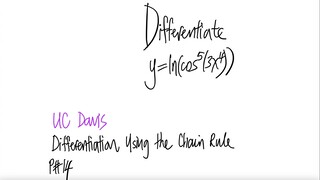 Differentiate
y=ln(cos⁵(3x⁴))
UC Davis
Differentiation Using the Chain Rule
P#14